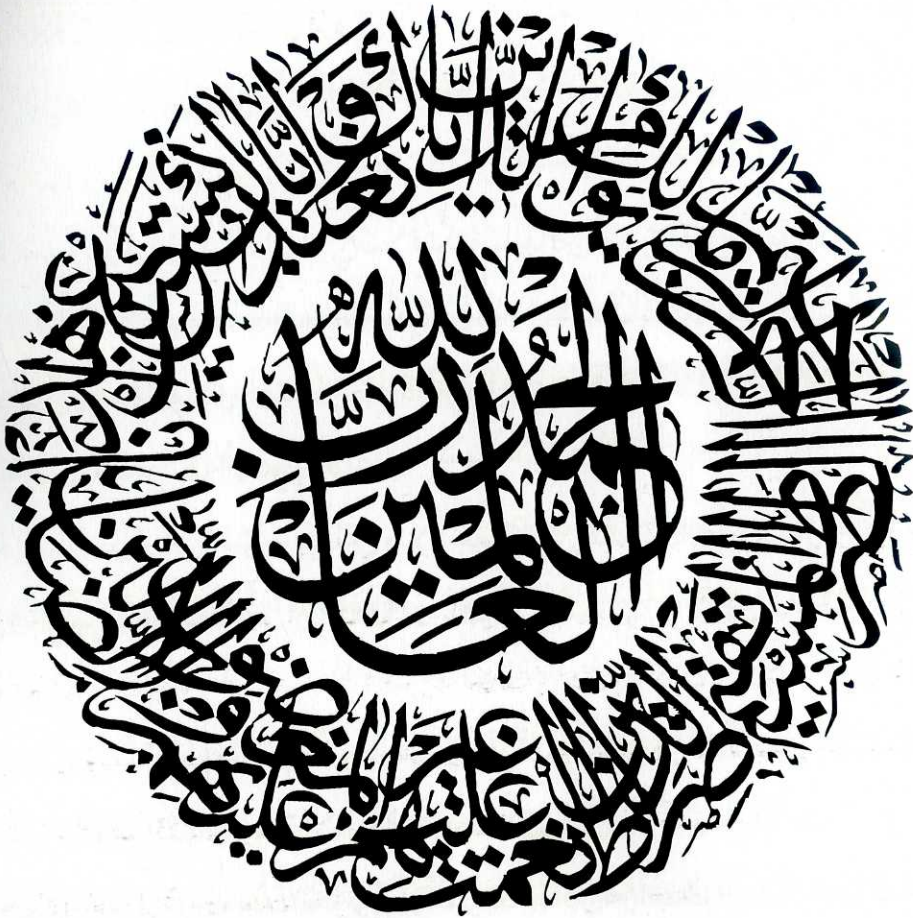 الحمد لله رب العالمين
الرحمن الرحيم
ملك يوم الدين
إياك نعبد وإياك نستعين
اهدنا الصراط المستقيم
صراط الذين أنعمت عليهم
غير المغضوب عليهم ولا الضالين